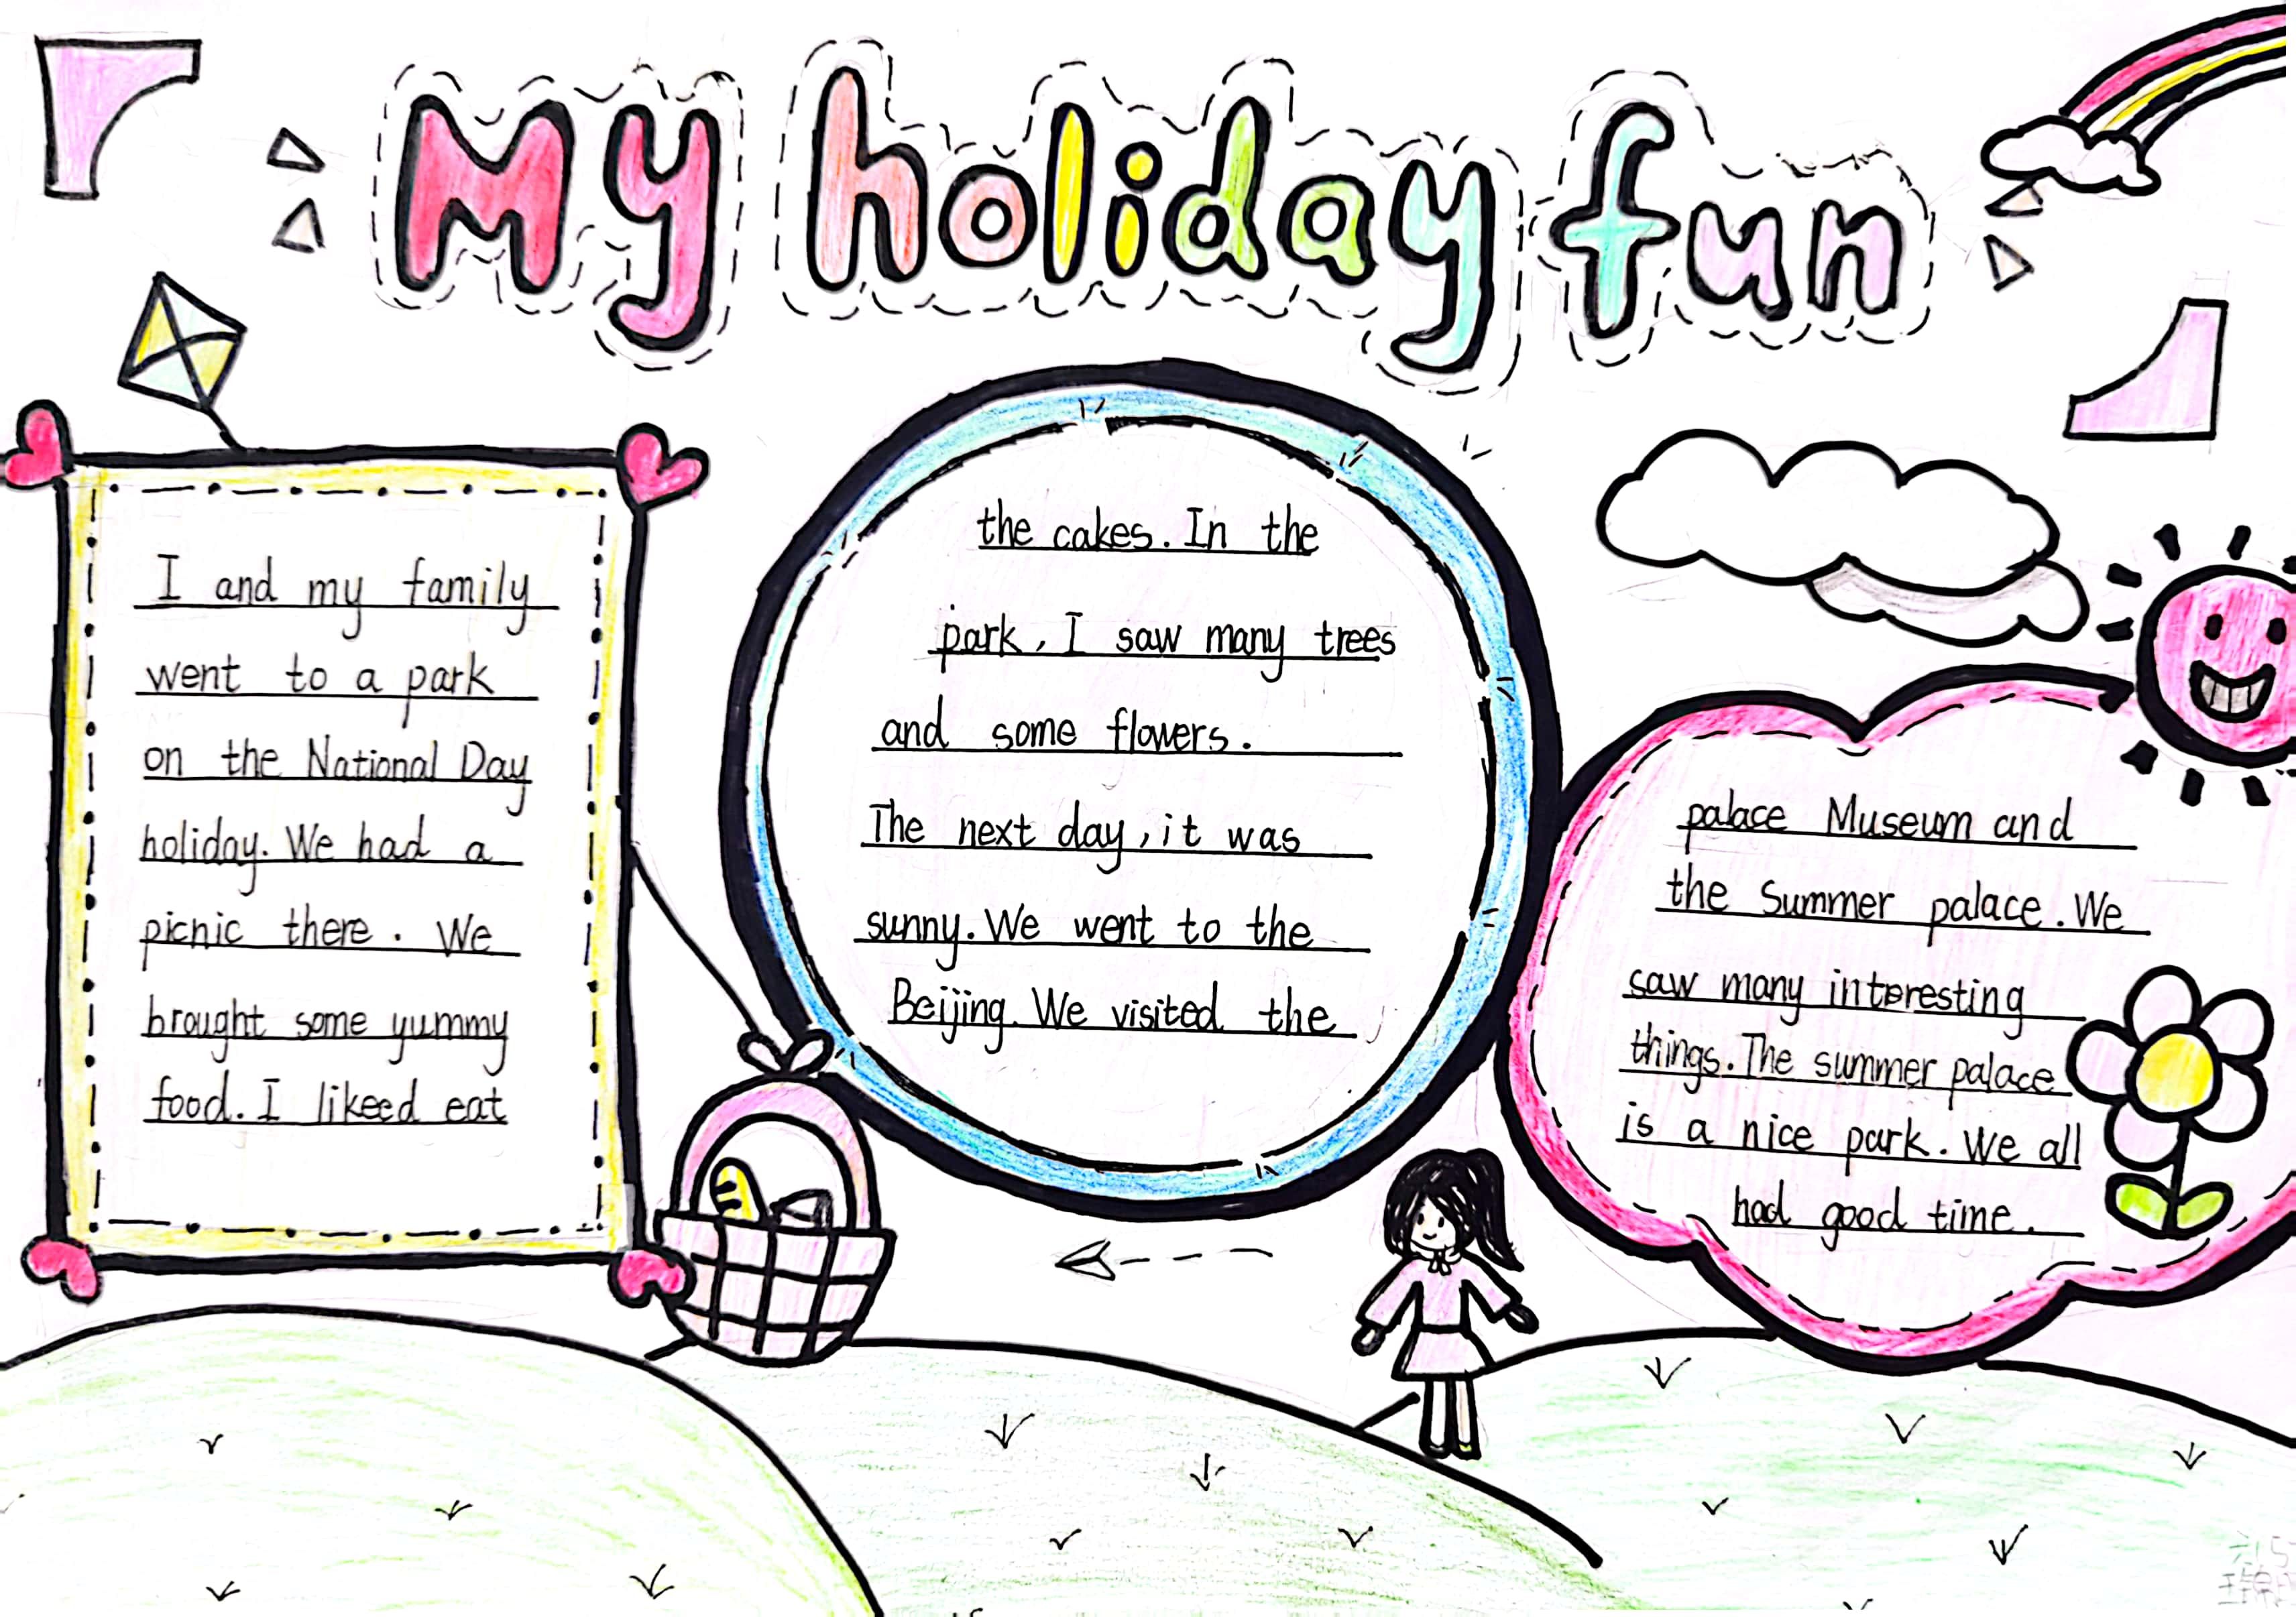 My holiday fun
I and my family
went to a park
on the National Day
holiday. We had a
picnic there. We
brought some yummy
food. I likeed eat
the cakes. In the
park, I saw many trees
and some flowers.
The next day, it was
sunny. We went to the
Beijing. We visited the
palace Museum and
the Summer palace. We
saw many interesting
things. The summer palace
is a nice park. We all
had good time.